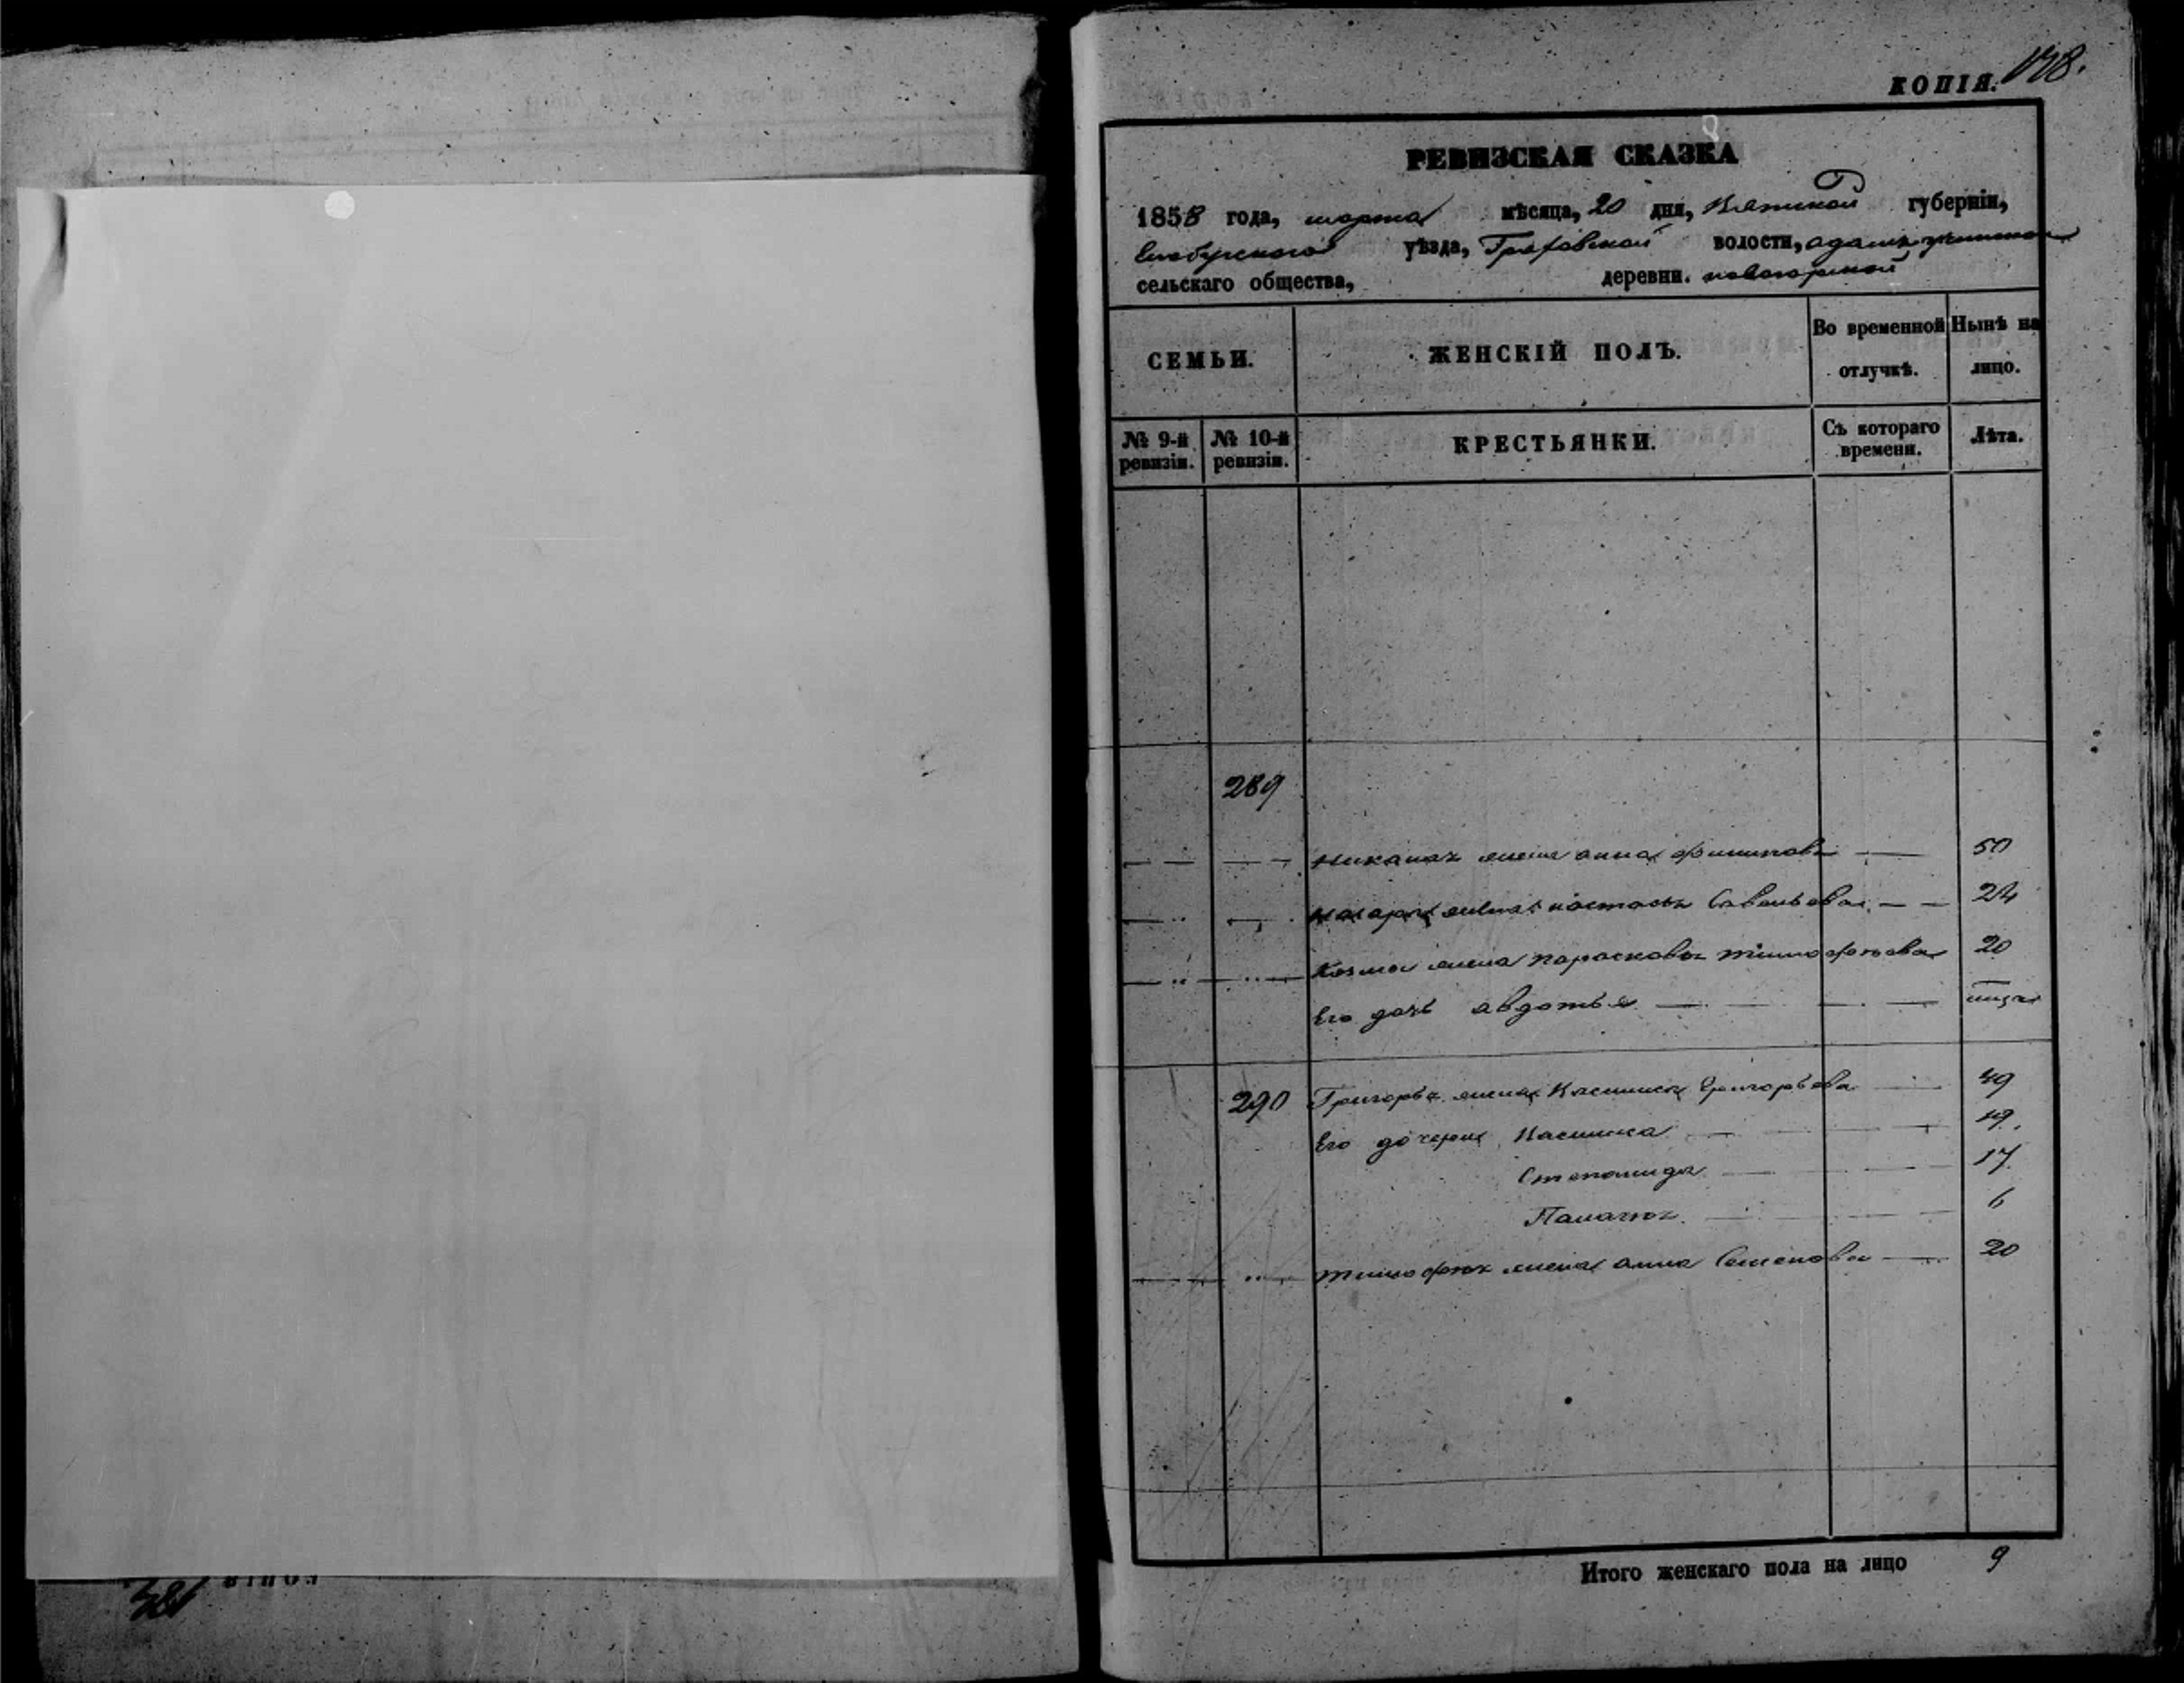 КОПІЯ. 178.
РЕВИЗСКАЯ СКАЗКА
1858 года, марта мѣсяца, 20 дня, Вятской губерніи,
Елабужскаго уѣзда, Граховской волости,
сельскаго общества, деревни.
СЕМЬИ. ЖЕНСКІЙ ПОЛЪ. Во временной отлучкѣ. Нынѣ на лицо.
№ 9-й ревизіи. № 10-й ревизіи. КРЕСТЬЯНКИ. Съ котораго времени. Лѣта.
289
жена анна филипова 50
жена настасья Савельева 24
Козмы жена парасковья тимофѣева 20
Его дочь авдотья
290 Григорья жена Григорьева 49
Его дочери 19.
Степанида 17
Палагѣя 6
тимофѣя жена анна Семенова 20
Итого женскаго пола на лицо 9
КОПІЯ